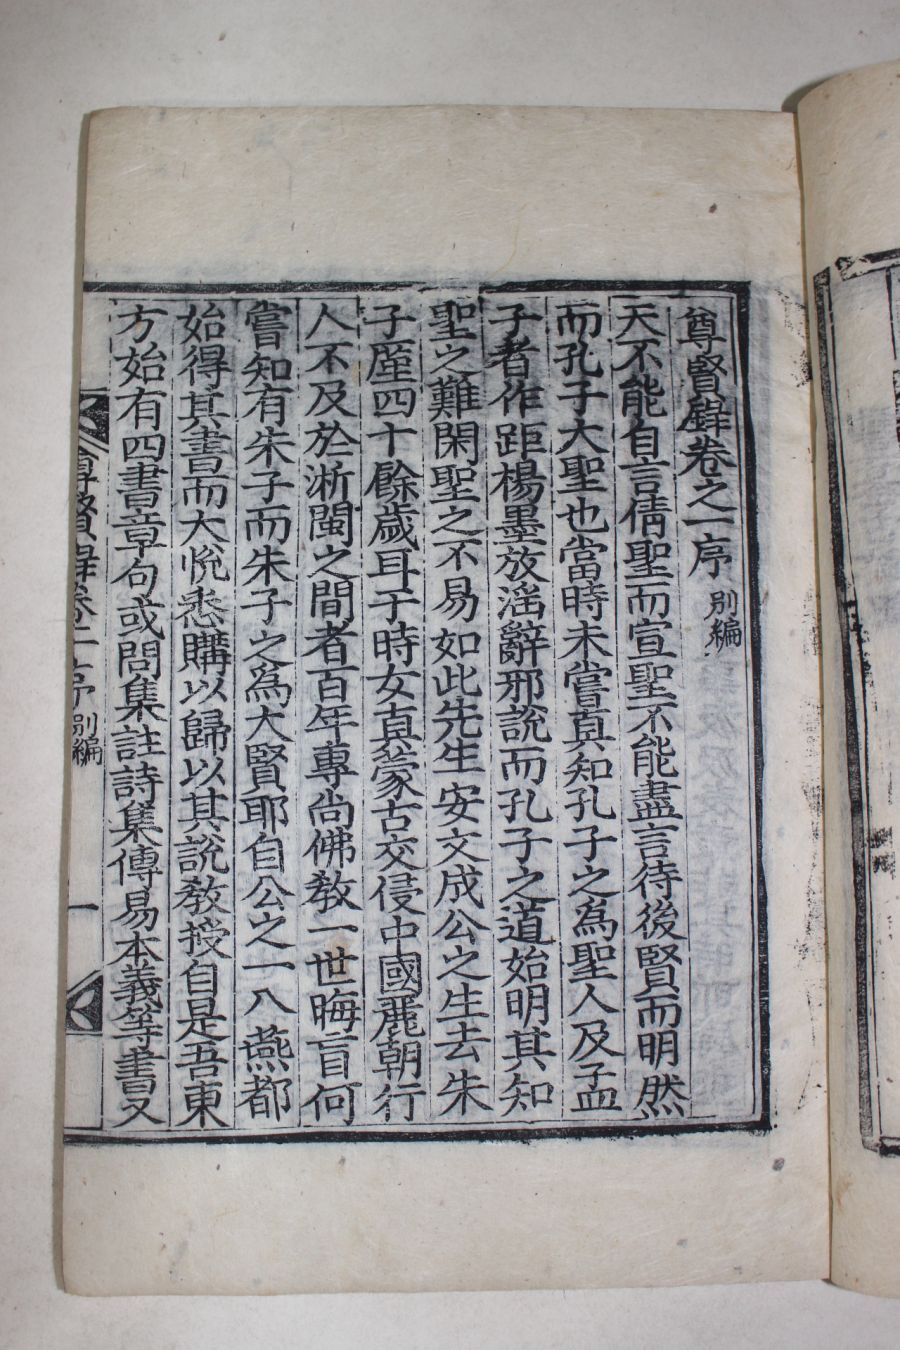 尊賢錄卷之一序 別編
天不能自言倩聖而宣聖不能盡言待後賢而明然
而孔子大聖也當時未嘗真知孔子之為聖人及孟
子者作距楊墨放滛辭邪說而孔子之道始明其知
聖之難閑聖之不易如此先生安文成公之生去朱
子產四十餘歲耳于時女真蒙古交侵中國麗朝行
人不及於淅閩之間者百年專尚佛教一世晦盲何
嘗知有朱子而朱子之為大賢耶自公之一入燕都
始得其書而大悅悉購以歸以其說教授自是吾東
方始有四書章句或問集註詩集傳易本義等書又
卷一序 別編
一